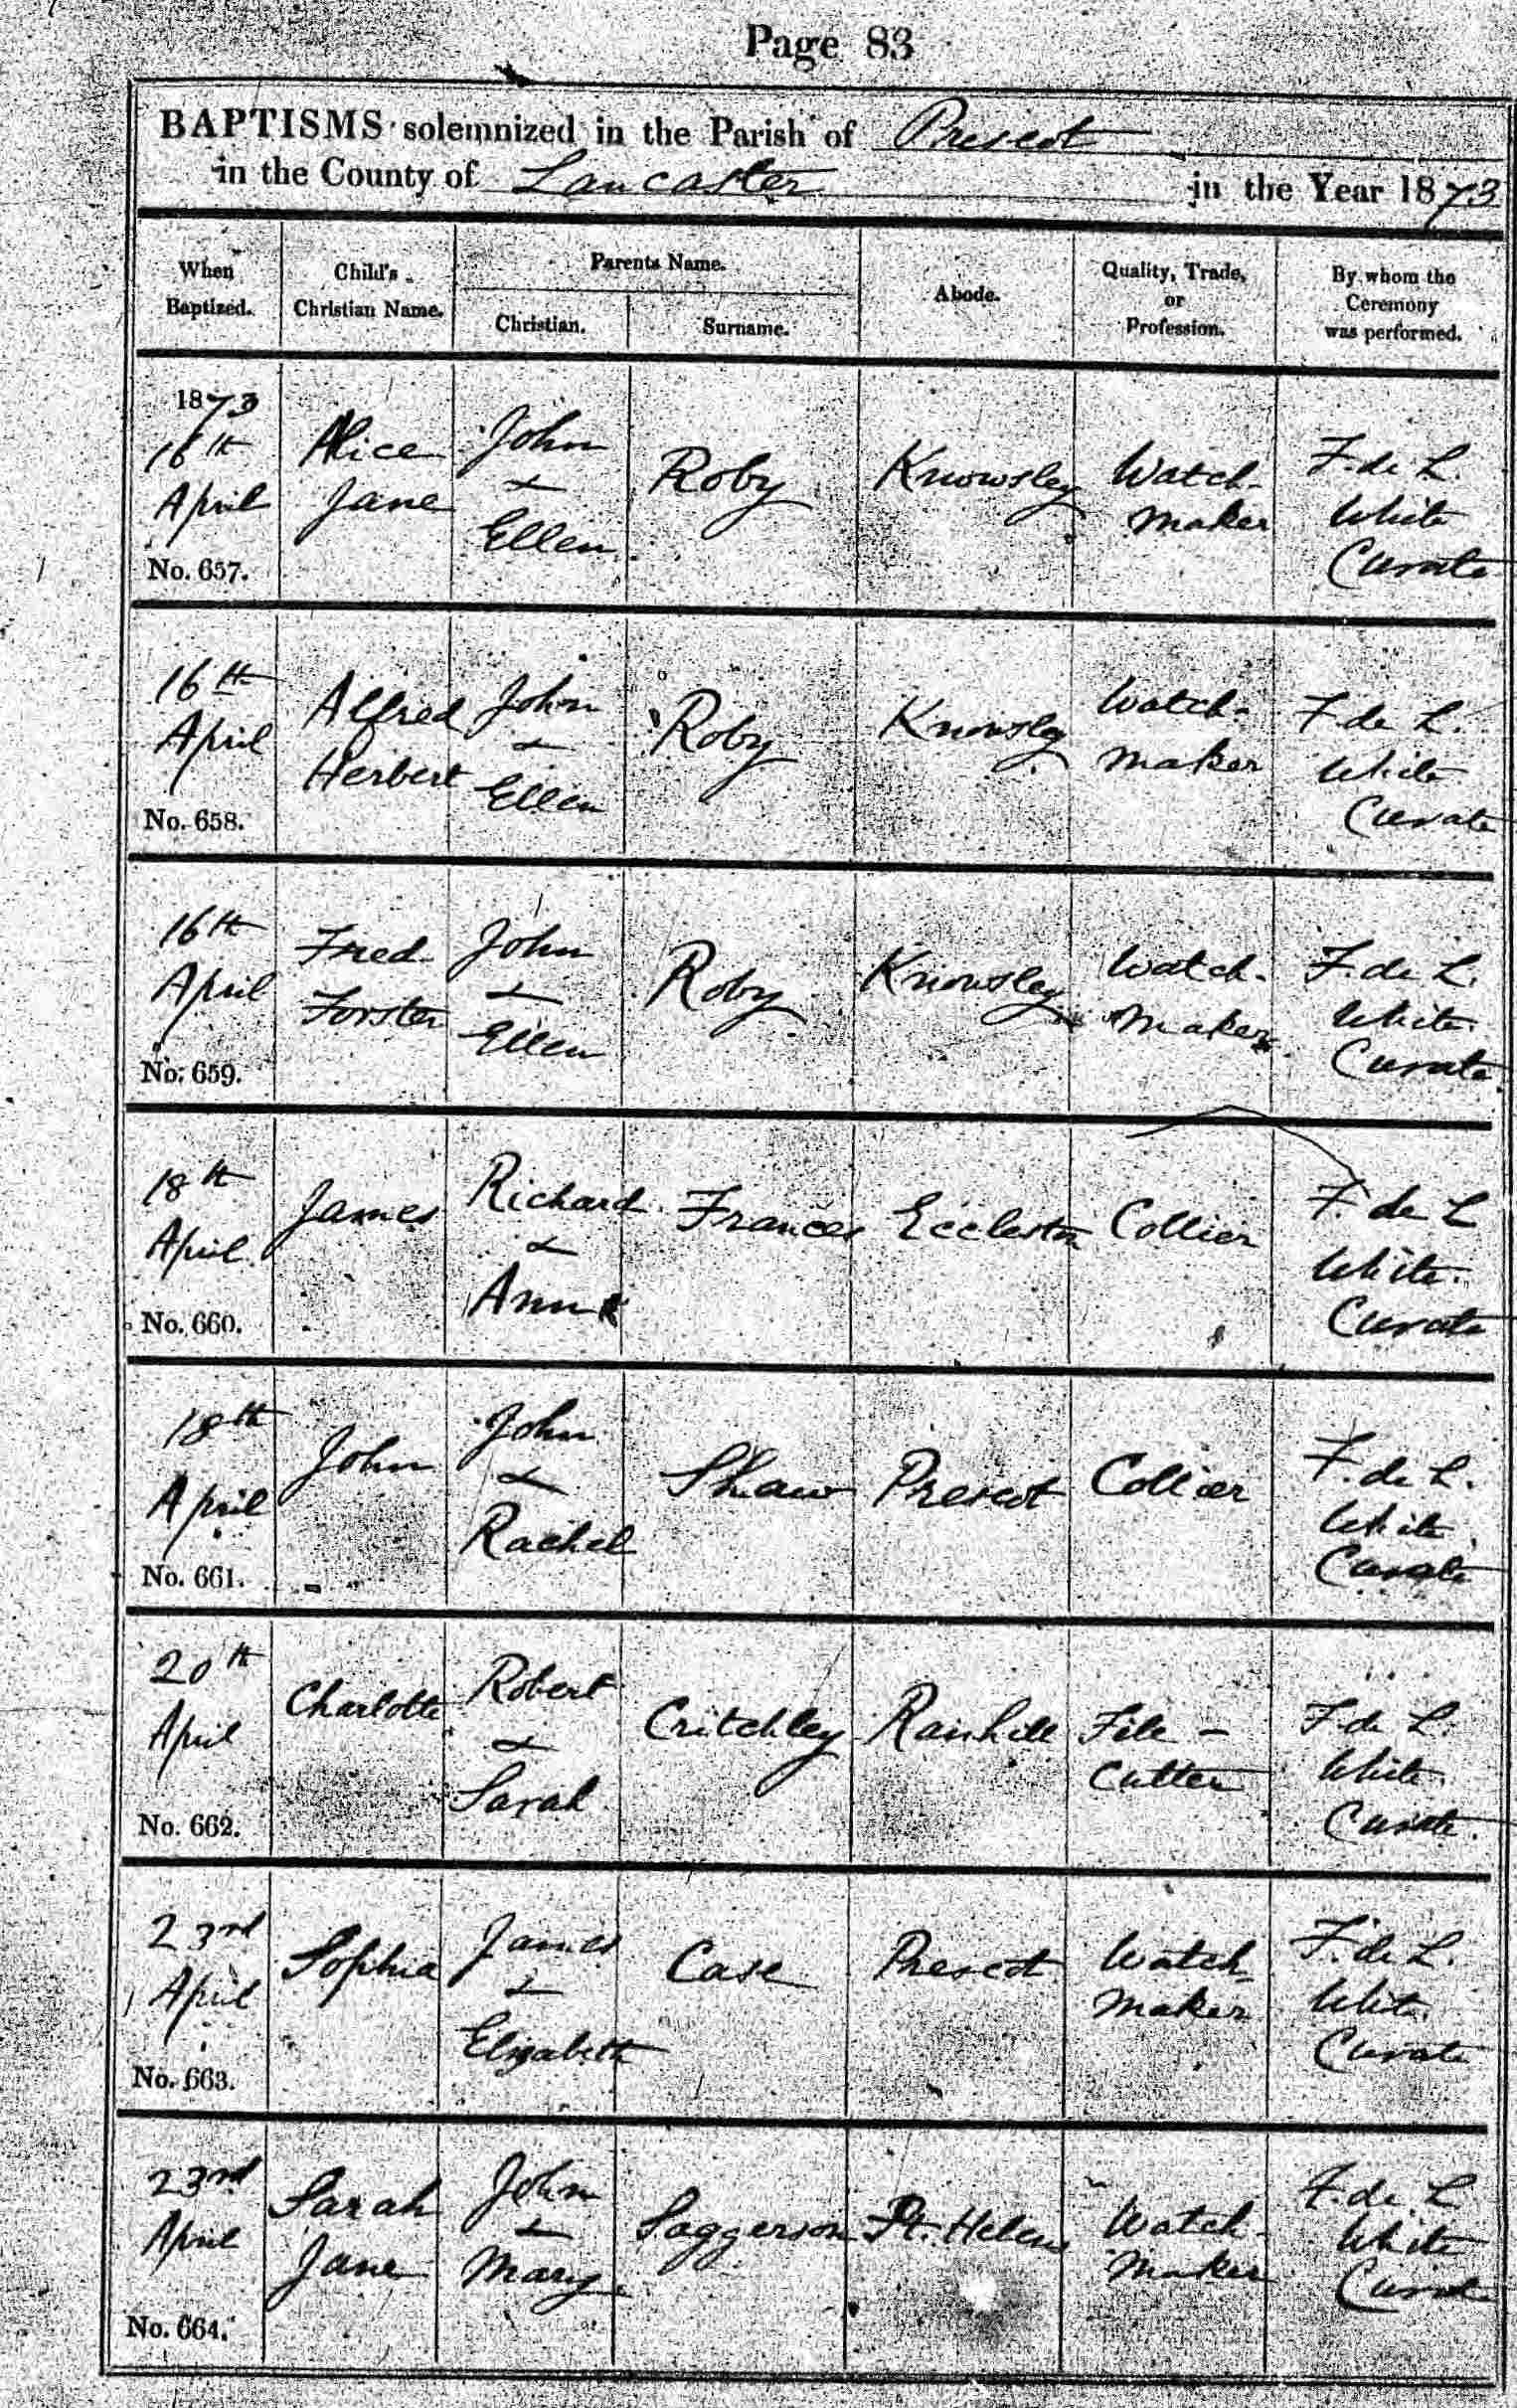 Page 83
BAPTISMS solemnized in the Parish of Prescot
in the County of Lancaster in the Year 1873
When Baptized.
Child's Christian Name.
Parents Name.
Christian.
Surname.
Abode.
Quality, Trade, or Profession.
By whom the Ceremony was performed.
1873
16th
April
No. 657.
Alice
Jane
John
&
Ellen
Roby
Knowsley
Watch-
maker
F. de L.
White
Curate
16th
April
No. 658.
Alfred
Herbert
John
&
Ellen
Roby
Knowsley
Watch-
maker
F. de L.
White
Curate
16th
April
No. 659.
Fred
Forster
John
&
Ellen
Roby
Knowsley
Watch-
maker
F. de L.
White
Curate
18th
April
No. 660.
James
Richard
&
Ann
Frances
Eccleston
Collier
F. de L
White
Curate
18th
April
No. 661.
John
John
&
Rachel
Shaw
Prescot
Collier
F. de L.
White
Curate
20th
April
No. 662.
Charlotte
Robert
&
Sarah
Critchley
Rainhill
File-
Cutter
F. de L.
White
Curate
23rd
April
No. 663.
Sophia
James
&
Elizabeth
Case
Prescot
Watch-
maker
F. de L.
White
Curate
23rd
April
No. 664.
Sarah
Jane
John
&
Mary
Saggerson
St. Helens
Watch-
maker
F. de L
White
Curate